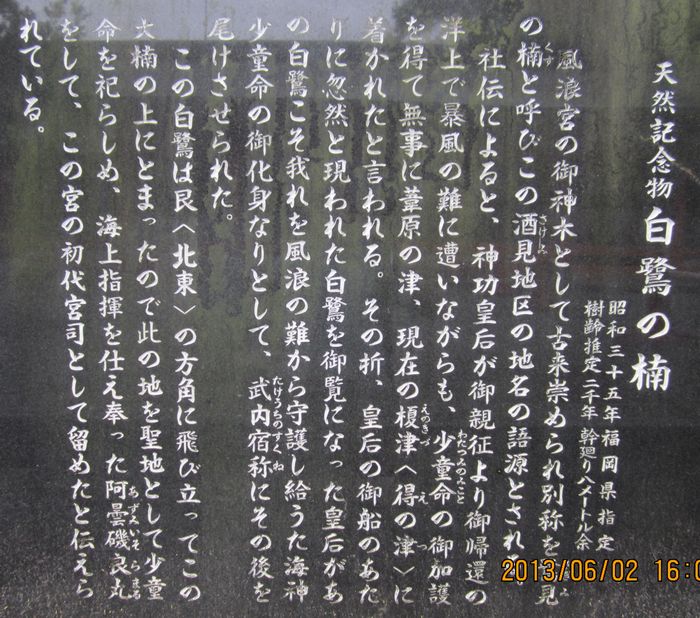 天然記念物 白鷺の楠
昭和三十五年福岡県指定
樹齢推定二千年 幹廻り八メートル余
風浪宮の御神木として古来崇められ別称を 見
の楠と呼びこの酒見地区の地名の語源とされ
社伝によると、神功皇后が御親征より御帰還の
洋上で暴風の難に遭いながらも、少童命の御加護
を得て無事に葦原の津、現在の榎津〈得の津〉に
着かれたと言われる。その折、皇后の御船のあた
りに忽然と現われた白鷺を御覧になった皇后があ
の白鷺こそ我れを風浪の難から守護し給うた海神
少童命の御化身なりとして、武内宿称にその後を
尾けさせられた。
この白鷺は艮〈北東〉の方角に飛び立ってこの
大楠の上にとまったので此の地を聖地として少童
命を祀らしめ、海上指揮を仕え奉った阿曇磯良丸
をして、この宮の初代宮司として留めたと伝えら
れている。
2013/06/02 16:0